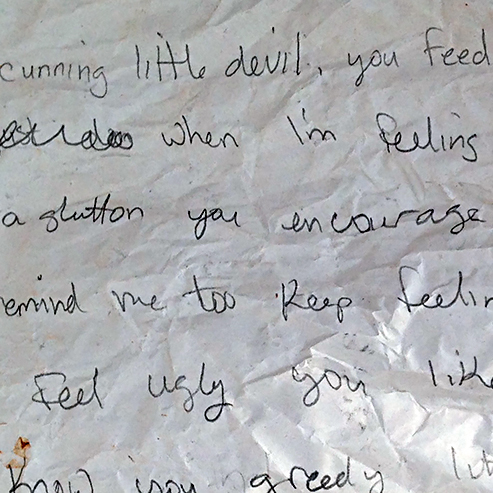 cunning little devil, you feed
when I'm feeling
a glutton you encourage
remind me too keep feelin
Feel ugly you like
know you greedy